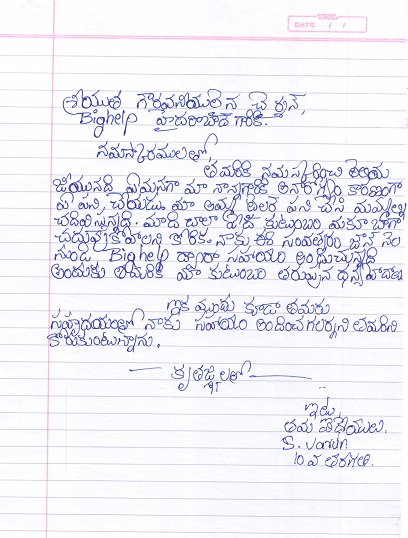 DATE / /
శ్రీయుత గౌరవనీయులైన చైర్మన్,
Bighelp హైదరాబాద్ గారికి.
నమస్కారములతో,
తమరికి నమస్కరించి తెలియ
జేయునది ఏమనగా మా నాన్నగారికి అనారోగ్యం కారణంగా
ఏ పని చేయడు. మా అమ్మ పని చేసి మమ్మల్ని
చదివిస్తున్నది. మాది చాలా పేద కుటుంబం మాకూ బాగా
చదువుకోవాలని కోరిక. నాకు ఈ సంవత్సరం జూన్ నెల
నుండి Bighelp ద్వారా సహాయం అందుచున్నది
అందుకు తమరికి మా కుటుంబం తరుపున ధన్యవాదాలు
ఇక ముందు కూడా తమరు
సహృదయంతో నాకు సహాయం అందించగలరని తమరిని
కోరుకుంటున్నాను.
కృతజ్ఞతలతో
ఇట్లు,
తమ విధేయులు.
S. Varun
10 వ తరగతి.